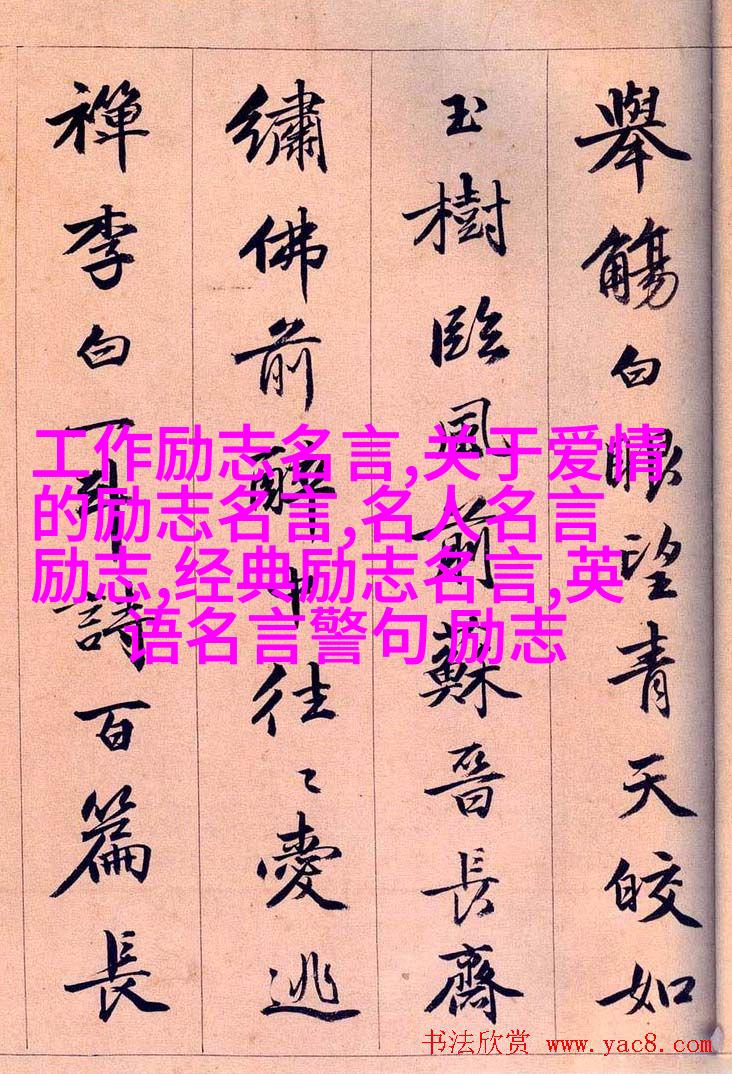 舉觴白眼望青天皎如
玉樹臨風前蘇晉長齋
繡佛前醉中往〻愛逃
禪李白一斗詩百篇長
工作励志名言,关于爱情
的励志名言,名人名言
励志,经典励志名言,英
语名言警句 励志
书法欣赏 www.yac8.com